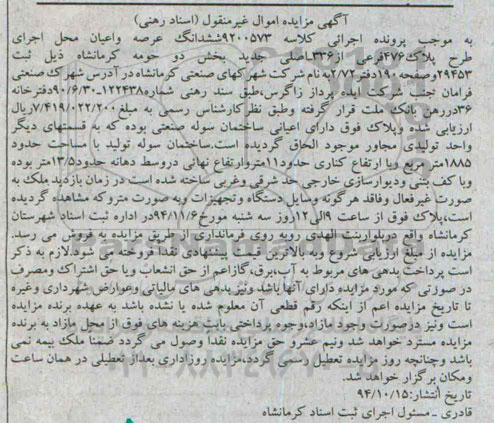 آگهی مزایده اموال غیرمنقول (اسناد رهنی)
به موجب پرونده اجرائی کلاسه ۹۲۰۰۵۷۳ششدانگ عرصه واعیان محل اجرای
طرح پلاک۴۷۶فرعی از۳۳۶اصلی جدید بخش دو حومه کرمانشاه ذیل ثبت
۲۹۴۵۳وصفحه۱۹۰دفتر۲/۷۲به نام شرکت شهرکهای صنعتی کرمانشاه در آدرس شهرک صنعتی
فرامان جنب شرکت ایده پرداز زاگرس،طبق سند رهنی شماره۱۲۲۴۳۸-۹۰/۶/۳۰دفترخانه
۳۶دررهن بانک ملت قرار گرفته وطبق نظرکارشناس رسمی به مبلغ۷/۴۱۹/۰۲۲/۲۰۰ریال
ارزیابی شده وپلاک فوق دارای اعیانی ساختمان سوله صنعتی بوده که به قسمتهای دیگر
واحد تولیدی مجاور موجود الحاق گردیده است.ساختمان سوله تولید با مساحت حدود
۱۸۸۵متر مربع وبا ارتفاع کناری حدود۱۱متروارتفاع نهائی دروسط دهانه حدود۱۳/۵متر بوده
وبا کف بتنی ودیوارسازی خارجی حد شرقی وغربی ساخته شده است در زمان بازدید ملک به
صورت غیرفعال وفاقد هرگونه وسایل دستگاه وتجهیزات وبه صورت متروکه مشاهده گردیده
است،پلاک فوق از ساعت ۹الی۱۲روز سه شنبه مورخ۹۴/۱۱/۶در اداره ثبت اسناد شهرستان
کرمانشاه واقع دربلواربنت الهدی روبه روی فرمانداری از طریق مزایده به فروش می رسد.
مزایده از مبلغ ارزیابی شروع وبه بالاترین قیمت پیشنهادی نقداً فروخته می شود.لازم به ذکر
است پرداخت بدهی های مربوط به آب،برق،گازاعم از حق انشعاب ویا حق اشتراک ومصرف
در صورتی که مورد مزایده دارای آنها باشد ونیز بدهی های مالیاتی وعوارض شهرداری وغیره
تا تاریخ مزایده اعم از اینکه رقم قطعی آن معلوم شده یا نشده باشد به عهده برنده مزایده
است ونیز درصورت وجود مازاد،وجوه پرداختی بابت هزینه های فوق از محل مازاد به برنده
مزایده مسترد خواهد شد ونیم عشرو حق مزایده نقداً وصول می گردد ضمنا ملک بیمه نمی
باشد وچنانچه روز مزایده تعطیل رسمی گردد،مزایده روزاداری بعداز تعطیلی در همان ساعت
ومکان برگزار خواهد شد.
تاریخ انتشار:۹۴/۱۰/۱۵
قادری - مسئول اجرای ثبت اسناد کرمانشاه